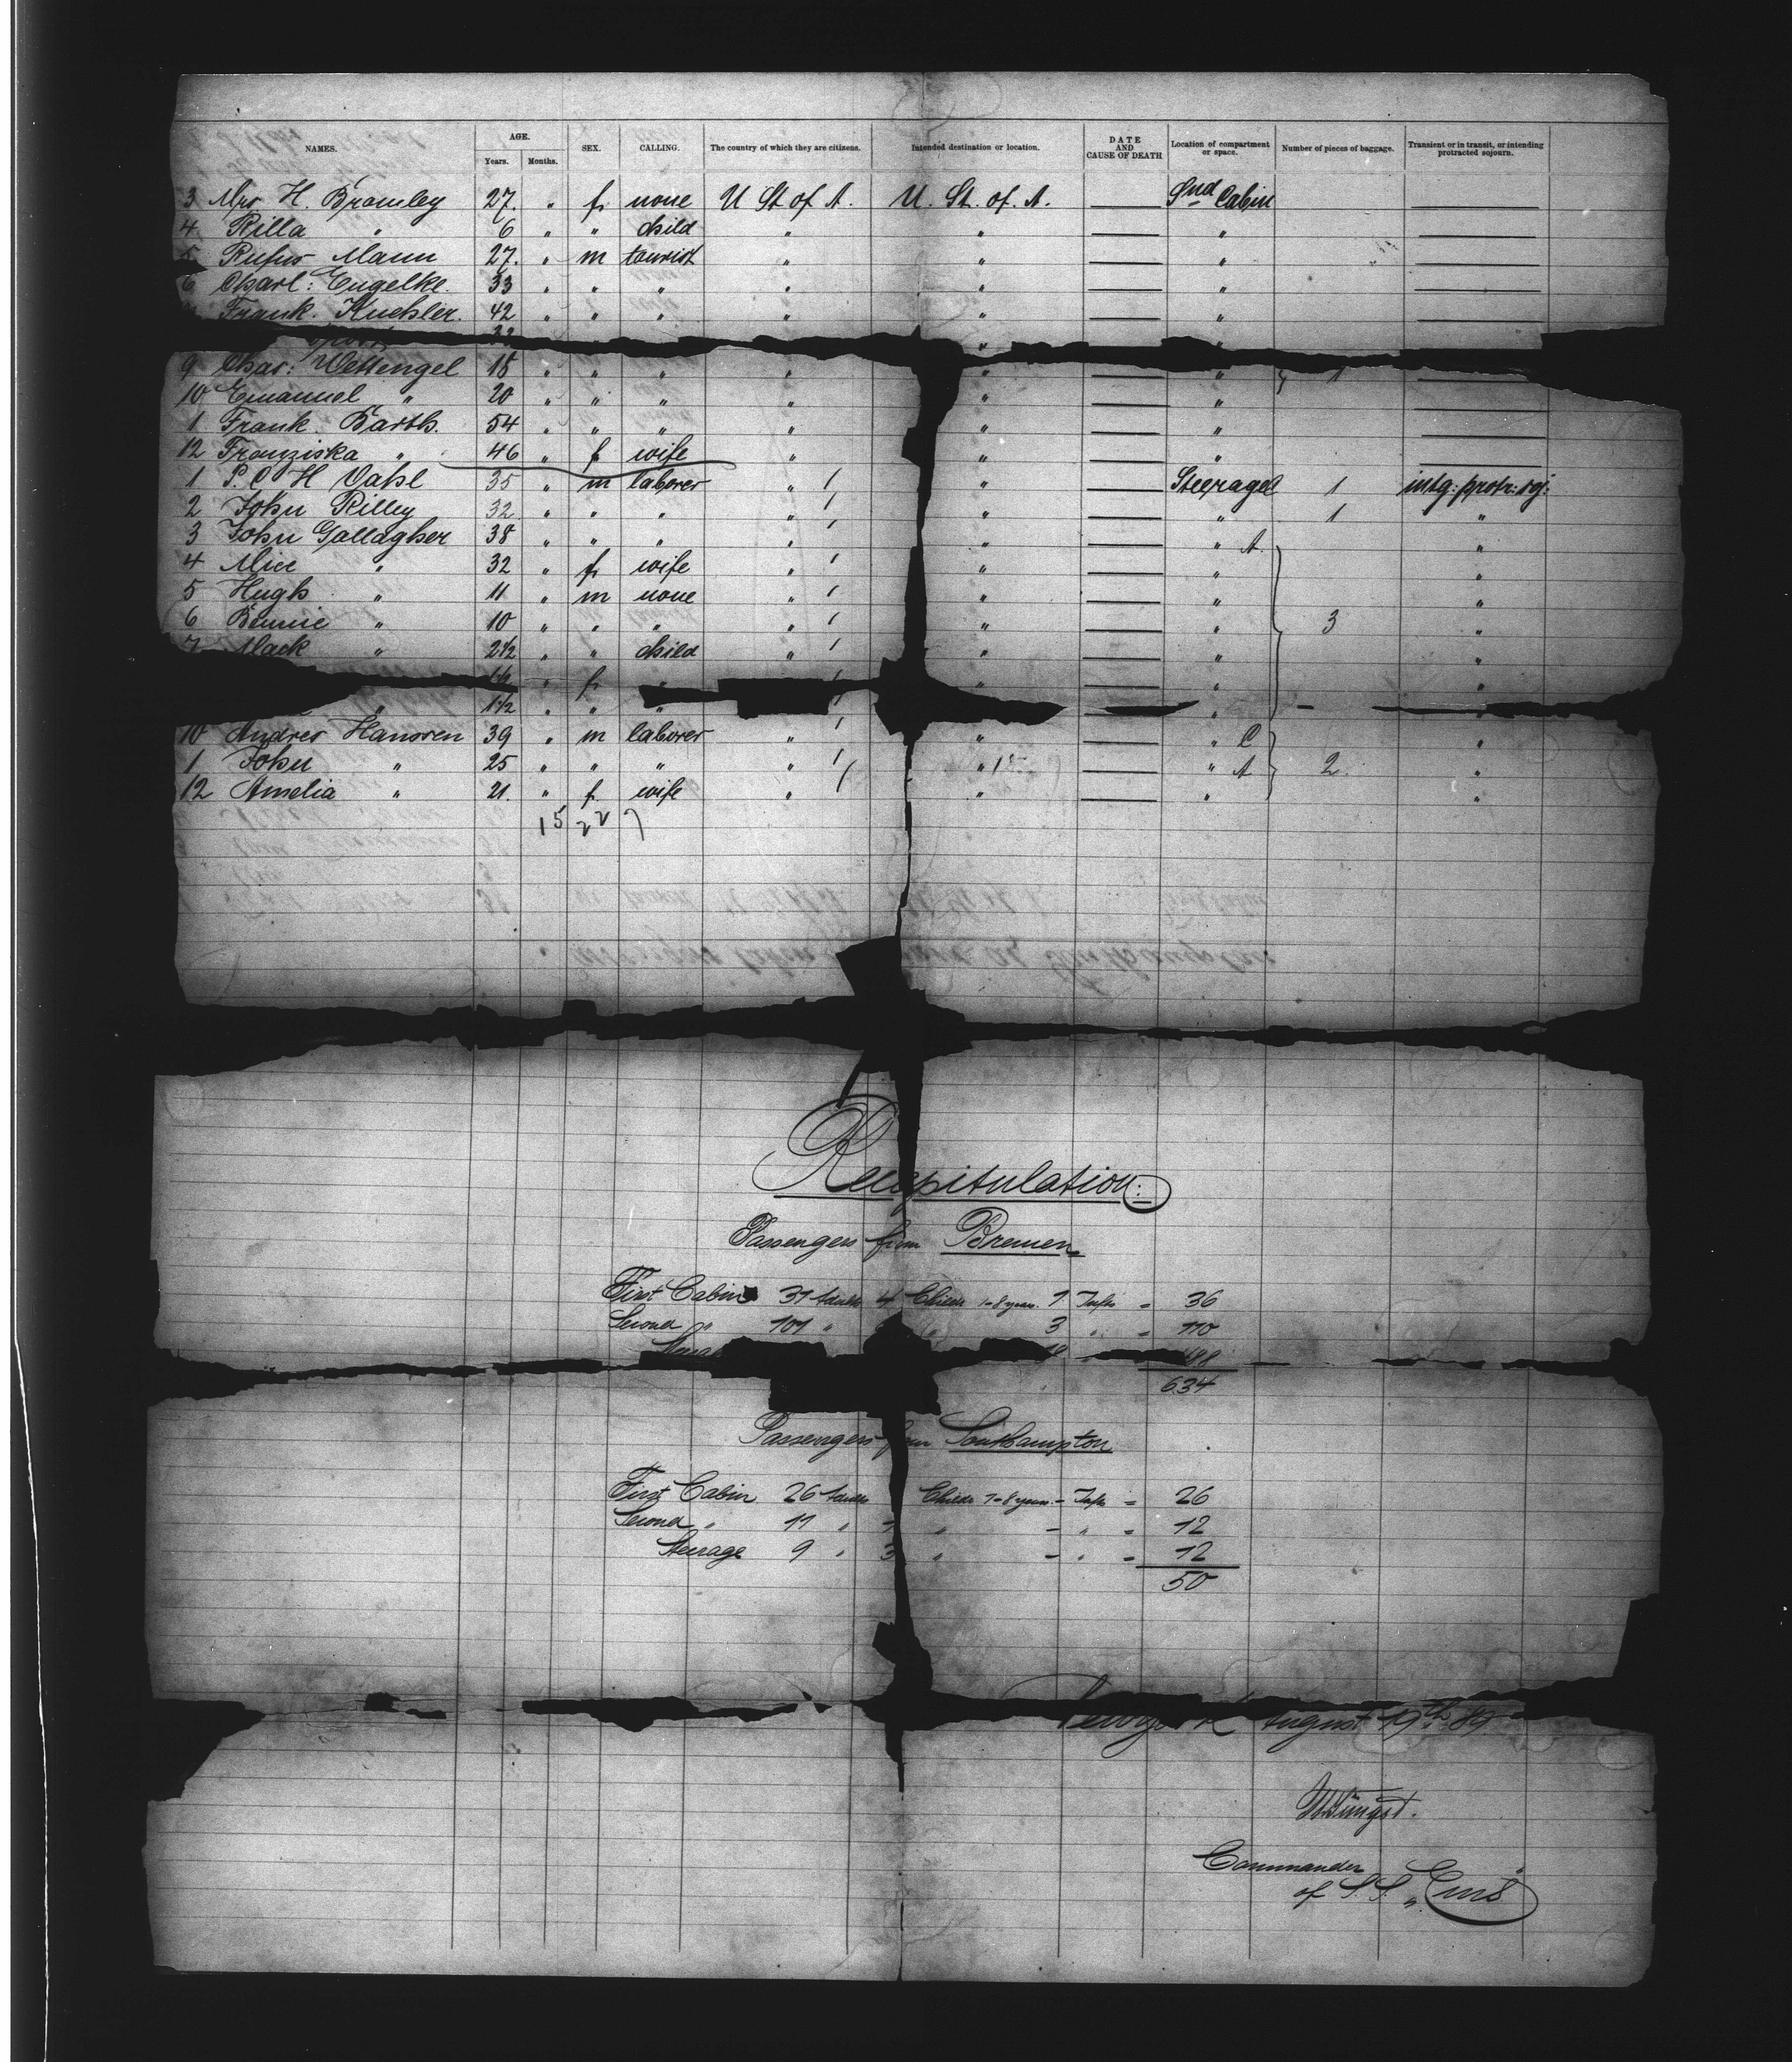 NAMES. AGE. Years. Months. SEX. CALLING. The country of which they are citizens. Intended destination or location. DATE AND CAUSE OF DEATH Location of compartment or space. Number of pieces of baggage. Transient or in transit, or intending protracted sojourn.
3 Mrs H. Bromley 27 " f. none U St of A. U. St. of. A. — 2nd Cabin —
4 Rilla " 6 " " child " " — " —
5 Rufus Mann 27. " m tourist " " — " —
6 Charl: Engelke. 33 " " " " " — " —
Frank. Kuebler. 42 " " " " " — " —
32 " "
9 Char: Wettengel 18 " " " " " — " 1 —
10 Emanuel " 20 " " " " " — " —
1 Frank. Barth. 54 " " " " " — " —
12 Franziska " 46 " f wife " " — " —
1 P. C H Dahl 35 " m laborer " / " — Steerage 1 intg: protr: soj:
2 John Rilley 32 " " " " / " — " 1 "
3 John Gallagher 38 " " " " / " — " A. "
4 Alice " 32 " f. wife " / " — " "
5 Hugh " 11 " m none " / " — " "
6 Bennie " 10 " " " " / " — " 3 "
7 Mack " 2½ " " child " / " — " "
1½ " f. " / " — " "
" 1½ " " " / — " "
10 Andres Hanssen 39 " m laborer " / " — " C "
1 John " 25 " " " " / " — " A 2. "
12 Amelia " 21. " f. wife " / " — " "
15 22 7
Recapitulation:
Passengers from Bremen
First Cabin 31 adults 4 Childr 1-8 years. 1 Infts = 36
Second " 101 " " 3 " = 110
634
Passengers from Southampton
First Cabin 26 adults Childr 1-8 years. - Infts = 26
Second " 11 " 1 " - " = 12
Steerage 9 " 3 " - " = 12
50
New York August 19th 89
Jüngst.
Commander
of S. S. "Ems"